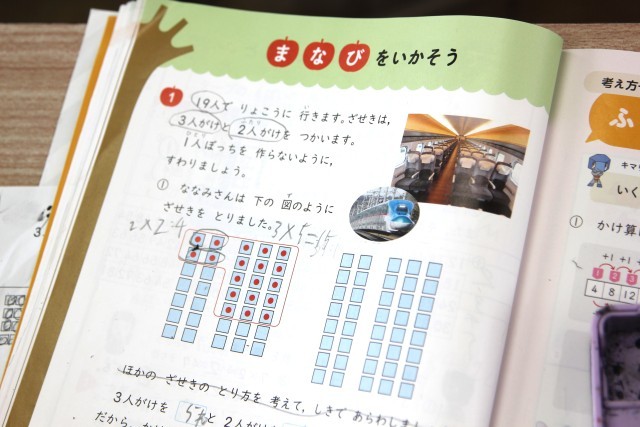 まなびをいかそう
1 19人で りょこうに 行きます。ざせきは,
3人がけと 2人がけを つかいます。
1人ぼっちを 作らないように,
すわりましょう。
① ななみさんは 下の 図のように
ざせきを とりました。
2×2=4
3×5=15
ほかの ざせきの とり方を 考えて, しきで あらわしま
3人がけを 5れつ と 2人が
だから,
考え方
ふ
キマ
いく
① かけ算
+1 +1
1 2 3
4 8 12
3